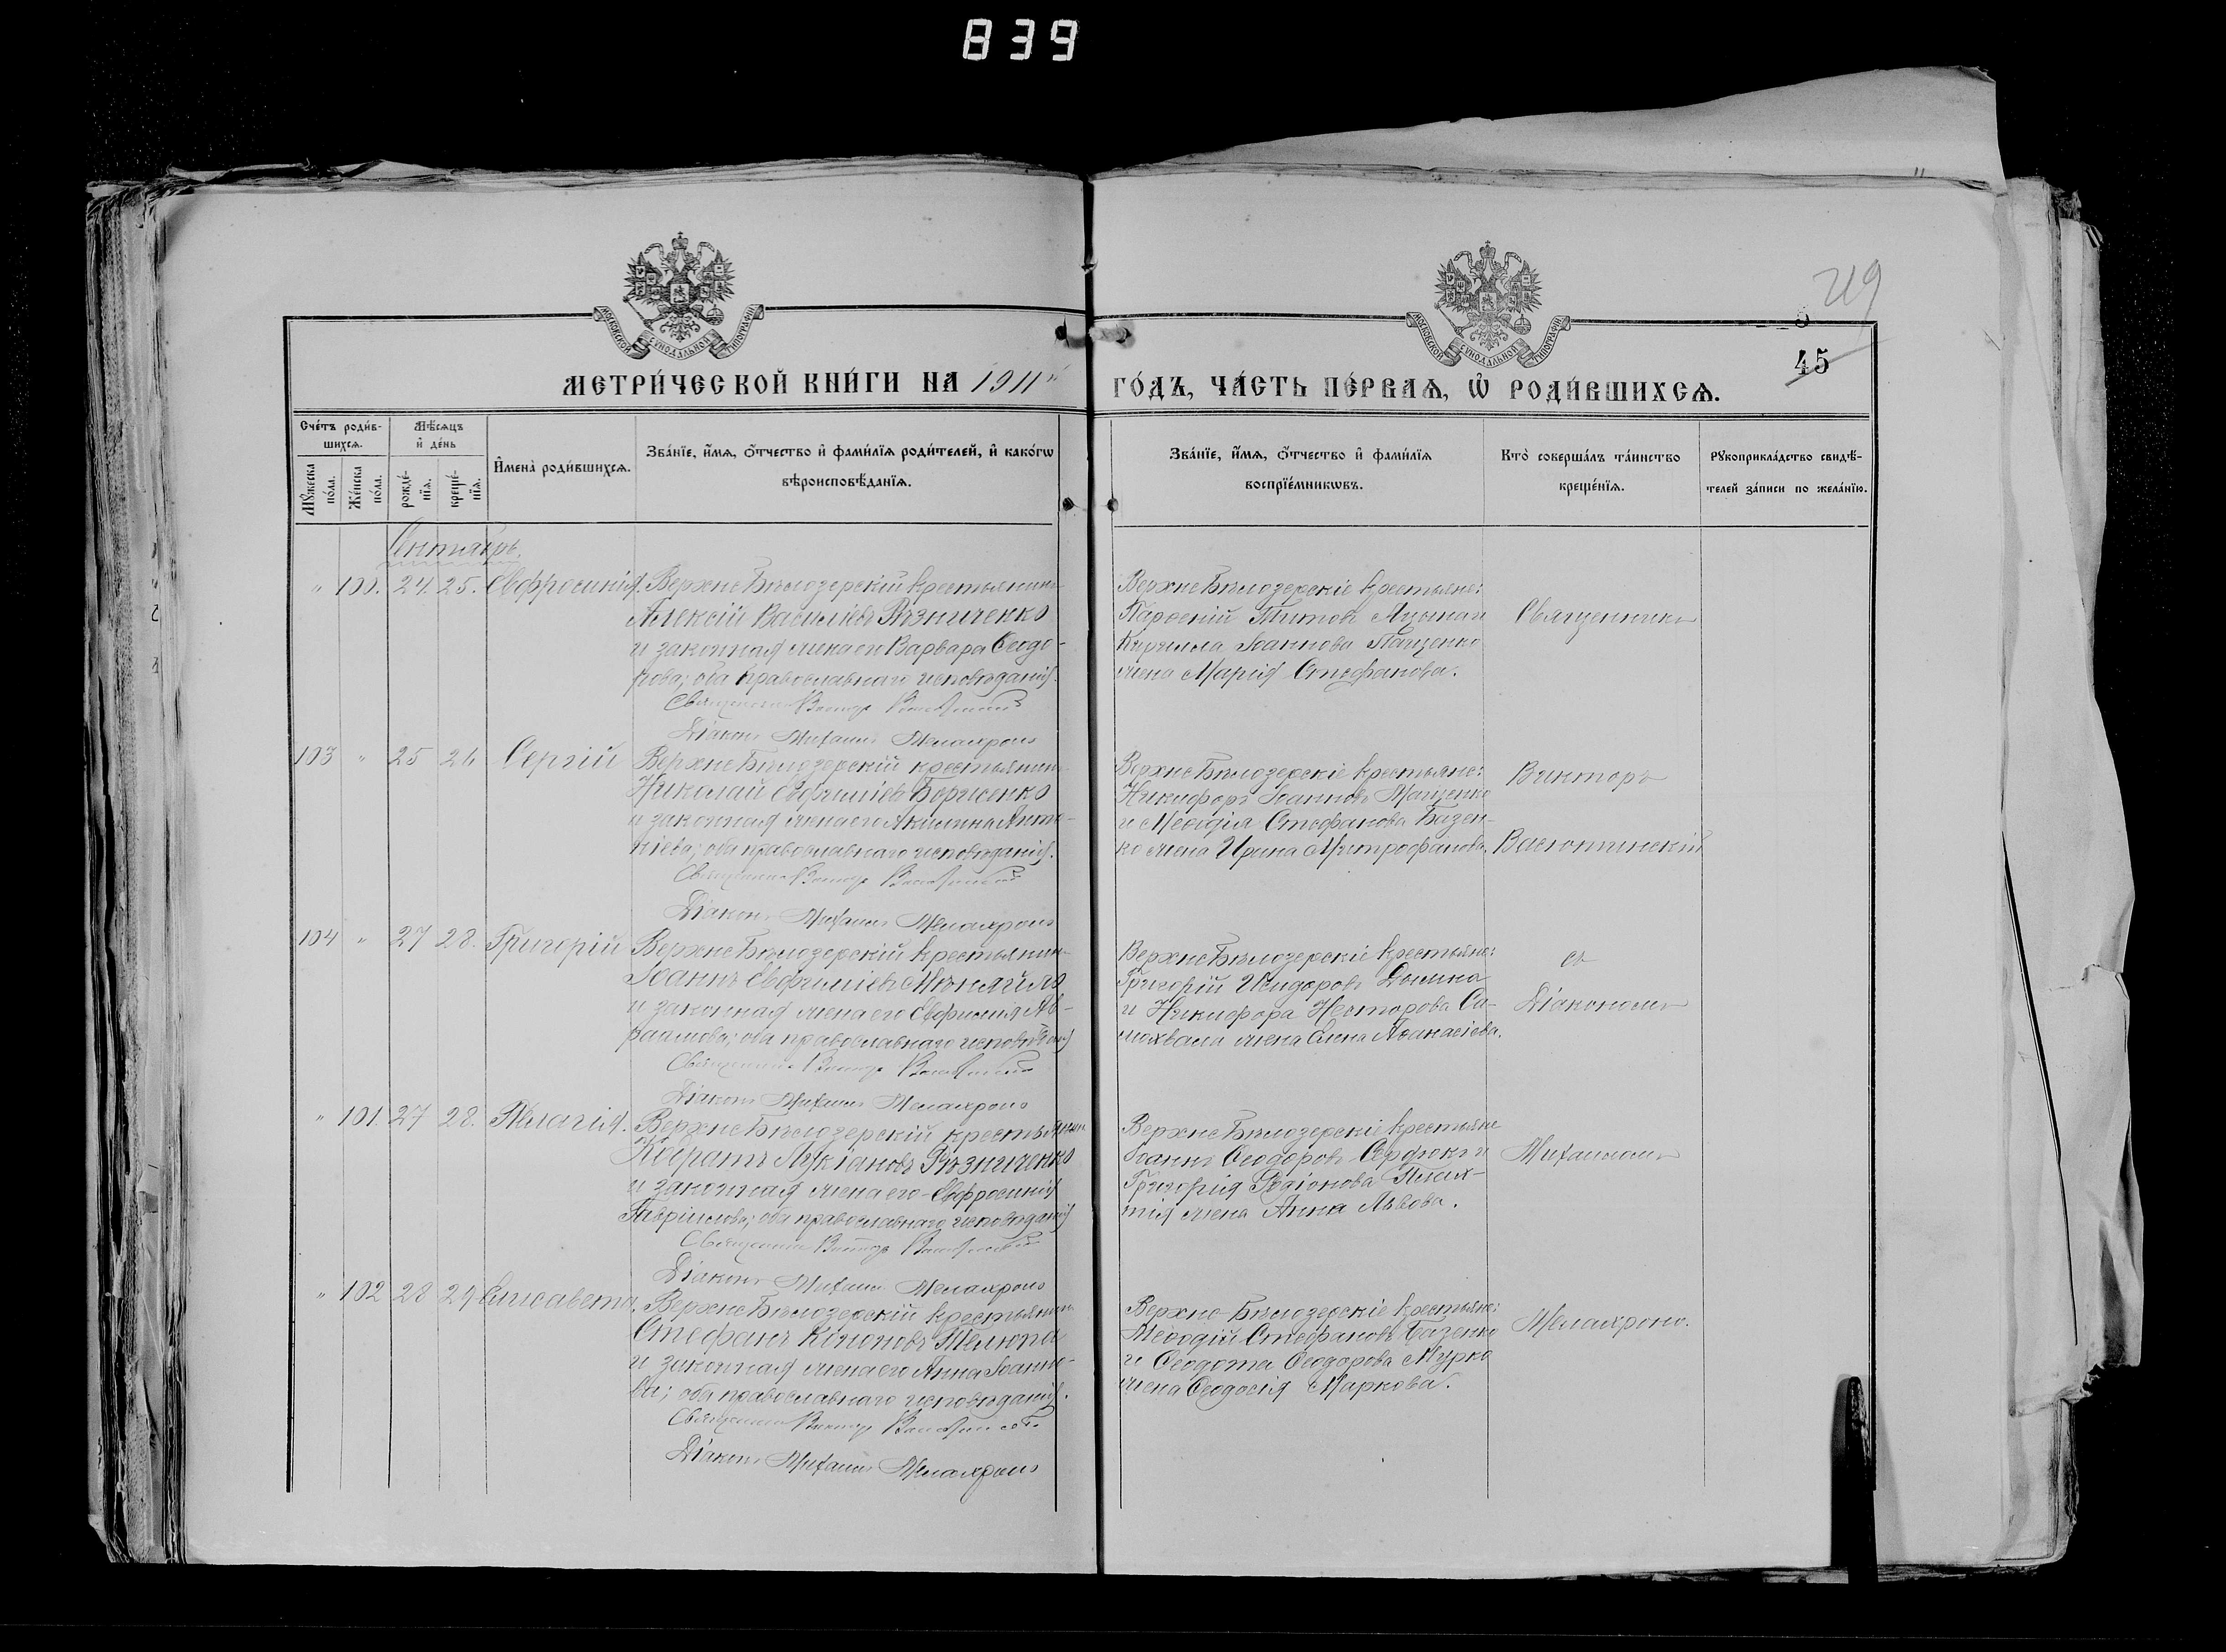 839
219
45
МОСКОВСКОЙ СѴНОДАЛЬНОЙ ТИПОГРАФІИ
МОСКОВСКОЙ СѴНОДАЛЬНОЙ ТИПОГРАФІИ
МЕТРИ́ЧЕСКОЙ КНИ́ГИ НА 1911й ГО́ДЪ, ЧА́СТЬ ПЕ́РВАѦ, Ѽ РОДИ́ВШИХСѦ.
Сче́тъ роди́в-
шихсѧ.
Мꙋжеска по́ла.
Же́нска по́ла.
Мѣ́сѧцъ
и҆ де́нь
рожде́-
нїѧ.
креще́-
нїѧ.
И҆мена̀ роди́вшихсѧ.
Зва́нїе, и҆́мѧ, ѻ҆́тчество и҆ фами́лїѧ роди́телей, и҆ како́гѡ
вѣроисповѣ́данїѧ.
Зва́нїе, и҆́мѧ, ѻ҆́тчество и҆ фами́лїѧ
воспрїе́мникѡвъ.
Кто̀ соверша́лъ та́инство
креще́нїѧ.
Рꙋкоприкла́дство свидѣ́-
телей за́писи по жела́нїю.
Сентябрь.
" 100. 24. 25. Евфросинія. Верхне Бѣлозерскій крестьянинъ
Алексій Васильевъ Рѣзниченко
и законная жена его Варвара Ѳеодо-
рова; оба православнаго исповѣданія.
Священникъ Викторъ
Діаконъ Михаилъ Мелахроно
Верхне Бѣлозерскіе крестьяне:
Парѳеній Титовъ
Кирилла Іоаннова Пащенко
жена Марія Стефанова.
Священникъ
103 " 25 26 Сергій Верхне Бѣлозерскій крестьянинъ
Николай Евфиміевъ Борисенко
и законная жена его Акилина Анто-
ніева; оба православнаго исповѣданія.
Священникъ Викторъ
Діаконъ Михаилъ Мелахроно
Верхне Бѣлозерскіе крестьяне:
Никифоръ Іоанновъ Мащенко
и Меѳодія Стефанова Базен-
ко жена Ирина Митрофанова.
Викторъ
104 " 27 28. Григорій Верхне Бѣлозерскій крестьянинъ
Іоаннъ Евфиміевъ Мѣняйло
и законная жена его Евфимія Ав-
раамова; оба православнаго исповѣданія
Священникъ Викторъ
Діаконъ Михаилъ Мелахроно
Верхне Бѣлозерскіе крестьяне:
Григорій Исидоровъ
и Никифора Несторова Са-
мохвала жена Елена Аѳанасіева.
съ
Діакономъ
" 101. 27 28. Пелагія. Верхне Бѣлозерскій крестьянинъ
Кодратъ Лукіановъ Рѣзниченко
и законная жена его Евфросинія
Гавріилова; оба православнаго исповѣданія
Священникъ Викторъ
Діаконъ Михаилъ Мелахроно
Верхне Бѣлозерскіе крестьяне
Іоаннъ Ѳеодоровъ Сердюкъ и
Григорія Плах-
тія жена Анна Львова.
Михаиломъ
" 102 28 29 Елисавета. Верхне Бѣлозерскій крестьянинъ
Стефанъ Телюпа
и законная жена его Анна Іоанно-
ва; оба православнаго исповѣданія.
Священникъ Викторъ
Діаконъ Михаилъ Мелахроно
Верхне-Бѣлозерскіе крестьяне:
Меѳодій Стефановъ Базенко
и Ѳедота Ѳеодорова Мурко
жена Ѳеодосія Маркова.
Мелахроно.